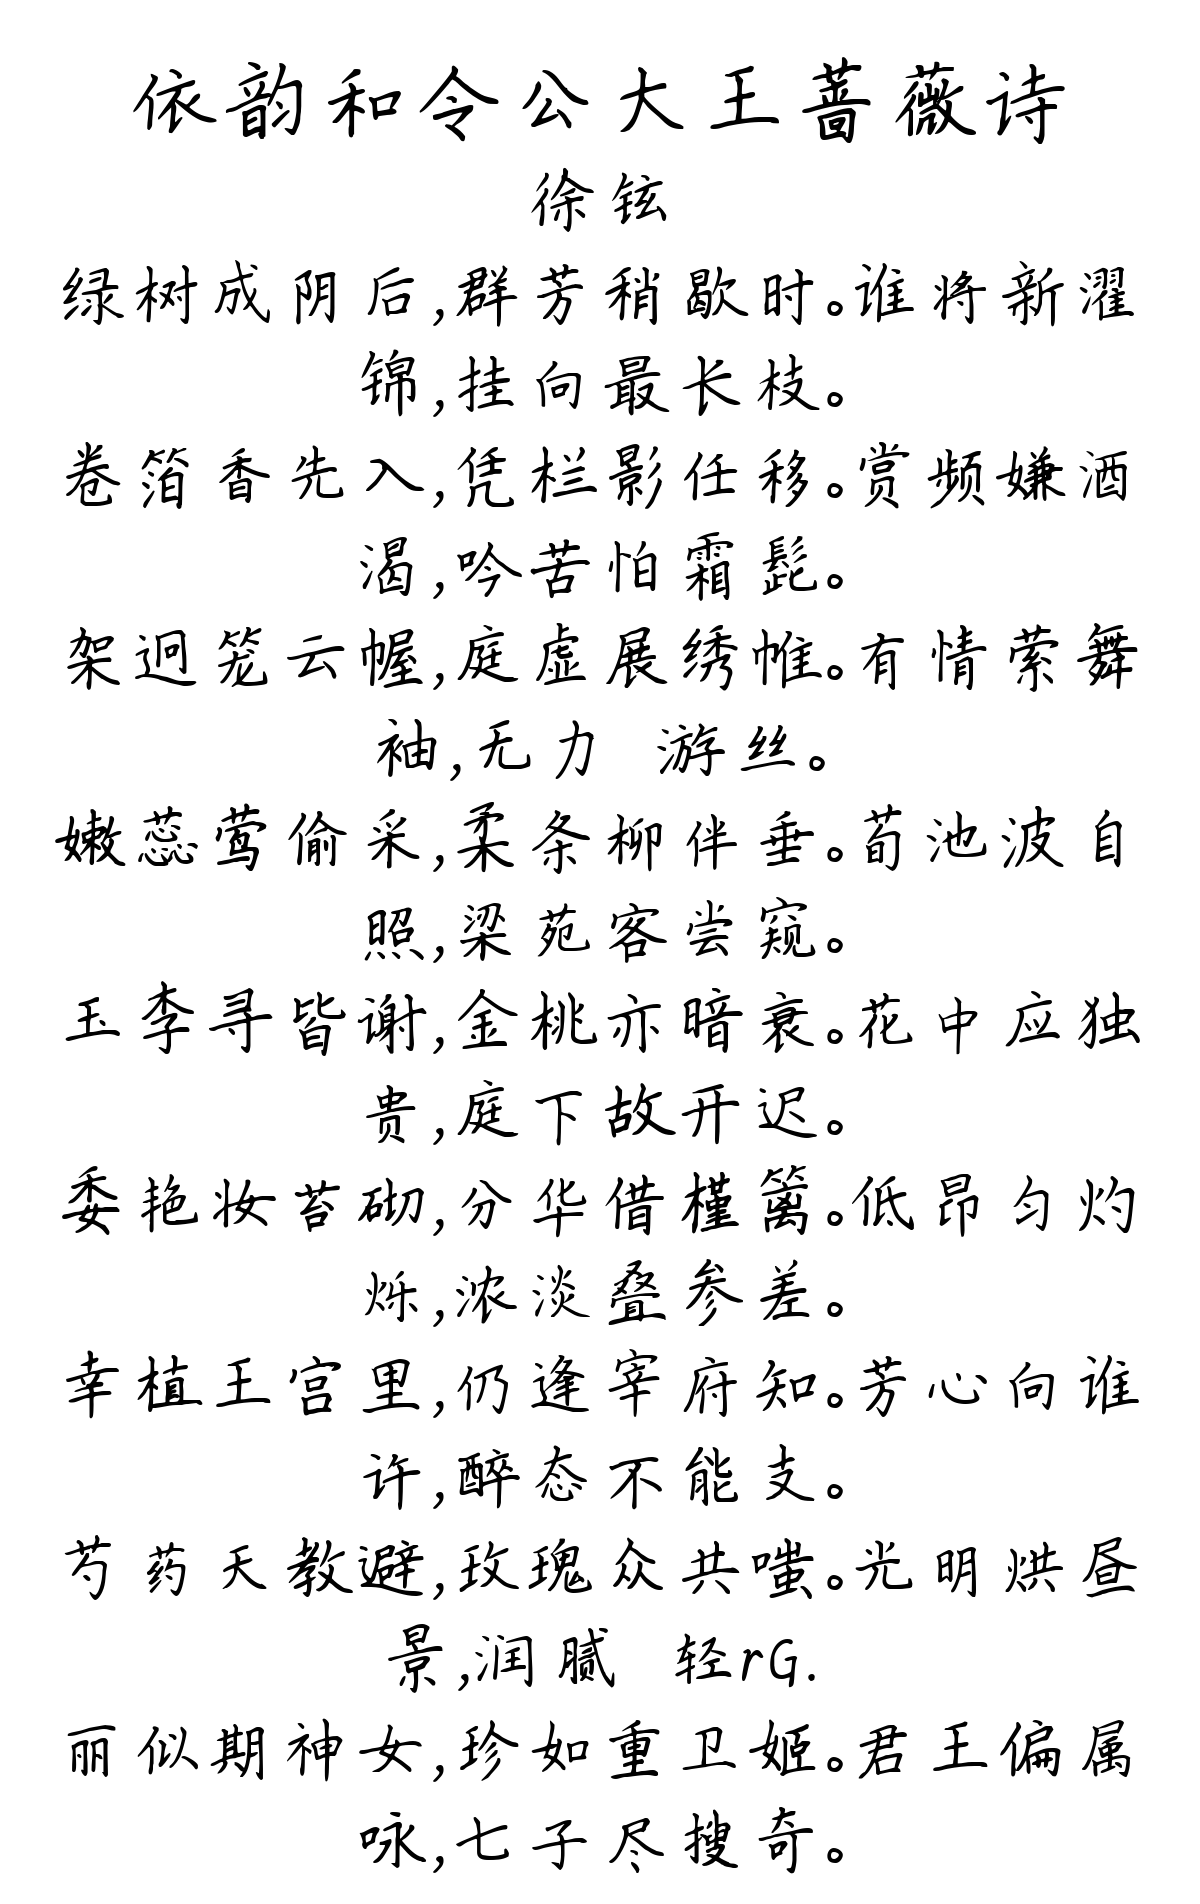 依韵和令公大王蔷薇诗
徐铉
绿树成阴后,群芳稍歇时。谁将新濯
锦,挂向最长枝。
卷箔香先入,凭栏影任移。赏频嫌酒
渴,吟苦怕霜髭。
架迥笼云幄,庭虚展绣帷。有情萦舞
袖,无力 游丝。
嫩蕊莺偷采,柔条柳伴垂。荀池波自
照,梁苑客尝窥。
玉李寻皆谢,金桃亦暗衰。花中应独
贵,庭下故开迟。
委艳妆苔砌,分华借槿篱。低昂匀灼
烁,浓淡叠参差。
幸植王宫里,仍逢宰府知。芳心向谁
许,醉态不能支。
芍药天教避,玫瑰众共嗤。光明烘昼
景,润腻 轻rG.
丽似期神女,珍如重卫姬。君王偏属
咏,七子尽搜奇。